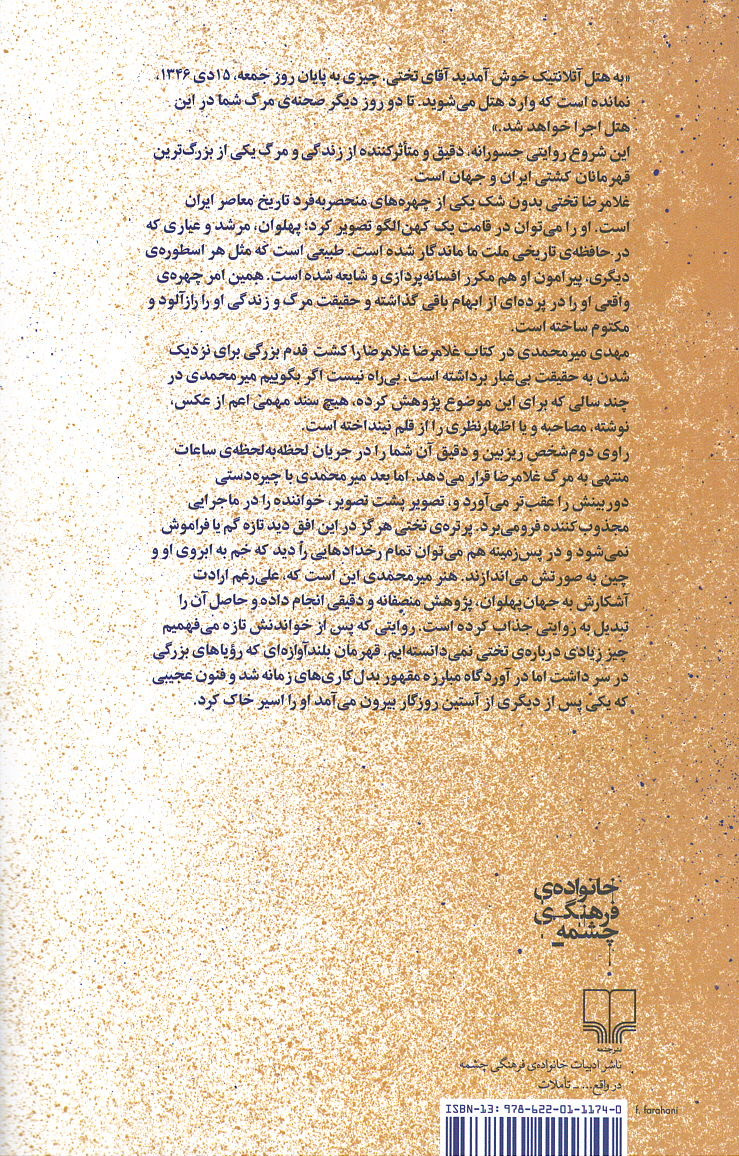 «به هتل آتلانتیک خوش آمدید آقای تختی. چیزی به پایان روز جمعه، ۱۵دی ۱۳۴۶،
نمانده است که وارد هتل می‌شوید. تا دو روز دیگر صحنه‌ی مرگ شما در این
هتل اجرا خواهد شد.»
این شروع روایتی جسورانه، دقیق و متأثرکننده از زندگی و مرگ یکی از بزرگ‌ترین
قهرمانان کشتی ایران و جهان است.
غلامرضا تختی بدون شک یکی از چهره‌های منحصربه‌فرد تاریخ معاصر ایران
است. او را می‌توان در قامت یک کهن‌الگو تصویر کرد؛ پهلوان، مرشد و عیاری که
در حافظه‌ی تاریخی ملت ما ماندگار شده است. طبیعی است که مثل هر اسطوره‌ی
دیگری، پیرامون او هم مکرر افسانه‌پردازی و شایعه شده است. همین امر چهره‌ی
واقعی او را در پرده‌ای از ابهام باقی گذاشته و حقیقت مرگ و زندگی او را رازآلود و
مکتوم ساخته است.
مهدی میرمحمدی در کتاب غلامرضا غلامرضا را کشت قدم بزرگی برای نزدیک
شدن به حقیقت بی‌غبار برداشته است. بی‌راه نیست اگر بگوییم میرمحمدی در
چند سالی که برای این موضوع پژوهش کرده، هیچ سند مهمی اعم از عکس،
نوشته، مصاحبه و یا اظهارنظری را از قلم نینداخته است.
راوی دوم‌شخص ریزبین و دقیق آن شما را در جریان لحظه‌به‌لحظه‌ی ساعات
منتهی به مرگ غلامرضا قرار می‌دهد. اما بعد میرمحمدی با چیره‌دستی
دوربینش را عقب‌تر می‌آورد و، تصویر پشت تصویر، خواننده را در ماجرایی
مجذوب‌کننده فرومی‌برد. پرتره‌ی تختی هرگز در این افق دید تازه گم یا فراموش
نمی‌شود و در پس‌زمینه هم می‌توان تمام رخدادهایی را دید که خم به ابروی او و
چین به صورتش می‌اندازند. هنر میرمحمدی این است که، علی‌رغم ارادت
آشکارش به جهان‌پهلوان، پژوهش منصفانه و دقیقی انجام داده و حاصل آن را
تبدیل به روایتی جذاب کرده است. روایتی که پس از خواندنش تازه می‌فهمیم
چیز زیادی درباره‌ی تختی نمی‌دانسته‌ایم. قهرمان بلندآوازه‌ای که رؤیاهای بزرگی
در سر داشت اما در آوردگاه مبارزه مقهور بدل‌کاری‌های زمانه شد و فنون عجیبی
که یکی پس از دیگری از آستین روزگار بیرون می‌آمد او را اسیر خاک کرد.
خانواده‌ی
فرهنگی
چشمه
نشرچشمه
ناشر ادبیات خانواده‌ی فرهنگی چشمه
در واقع... ــ تاملات
ISBN-13: 978-622-01-1174-0
f. farahani